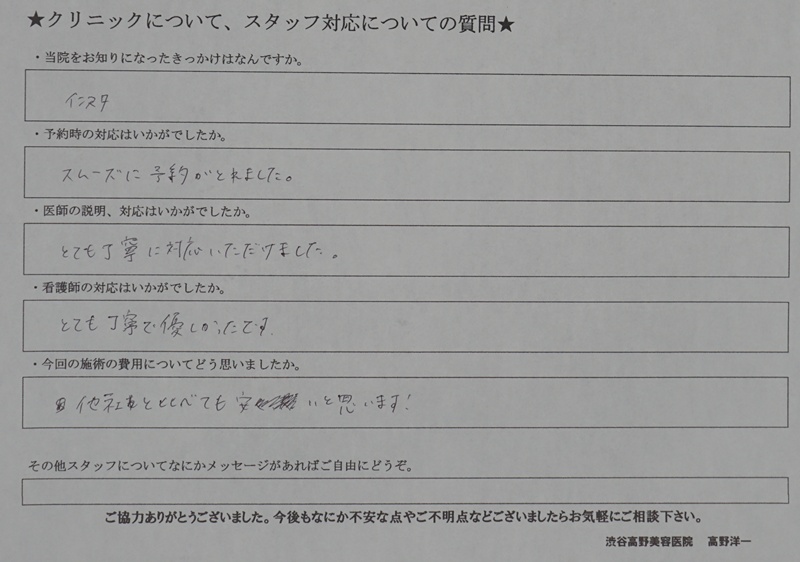 ★クリニックについて、スタッフ対応についての質問★
・当院をお知りになったきっかけはなんですか。
インスタ
・予約時の対応はいかがでしたか。
スムーズに予約がとれました。
・医師の説明、対応はいかがでしたか。
とても丁寧に対応いただけました。
・看護師の対応はいかがでしたか。
とても丁寧で優しかったです。
・今回の施術の費用についてどう思いましたか。
他社とくらべても安いと思います!
その他スタッフについてなにかメッセージがあればご自由にどうぞ。
ご協力ありがとうございました。今後もなにか不安な点やご不明点などございましたらお気軽にご相談下さい。
渋谷高野美容医院 高野洋一